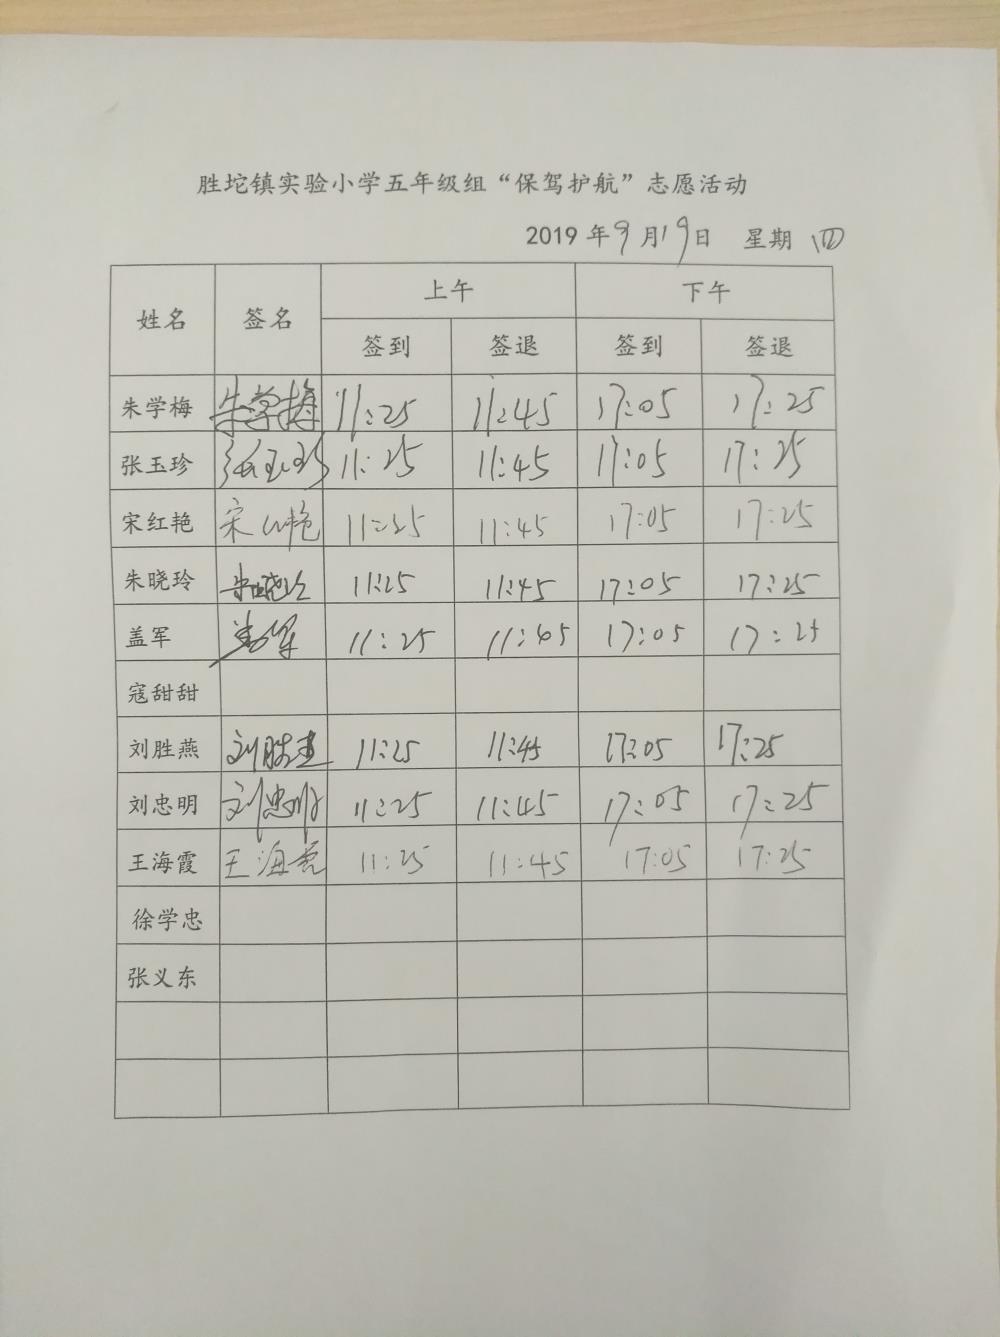 胜坨镇实验小学五年级组“保驾护航”志愿活动
2019年9月19日 星期四
姓名 签名 上午 下午
签到 签退 签到 签退
朱学梅 朱学梅 11:25 11:45 17:05 17:25
张玉珍 张玉珍 11:25 11:45 17:05 17:25
宋红艳 宋红艳 11:25 11:45 17:05 17:25
朱晓玲 朱晓玲 11:25 11:45 17:05 17:25
盖军 盖军 11:25 11:45 17:05 17:25
寇甜甜
刘胜燕 刘胜燕 11:25 11:45 17:05 17:25
刘忠明 刘忠明 11:25 11:45 17:05 17:25
王海霞 王海霞 11:25 11:45 17:05 17:25
徐学忠
张义东